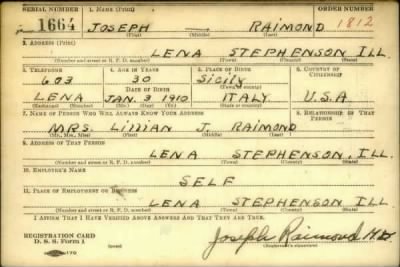 SERIAL NUMBER 1. NAME (Print) ORDER NUMBER
1664 JOSEPH — RAIMOND 1812
(First) (Middle) (Last)
2. ADDRESS (Print)
LENA STEPHENSON ILL
(Number and street or R. F. D. number) (Town) (County) (State)
3. TELEPHONE 4. AGE IN YEARS 5. PLACE OF BIRTH 6. COUNTRY OF CITIZENSHIP
603 30 Sicily
DATE OF BIRTH (Town or county)
LENA JAN. 3 1910 ITALY U.S.A
(Exchange) (Number) (Mo.) (Day) (Yr.) (State or country)
7. NAME OF PERSON WHO WILL ALWAYS KNOW YOUR ADDRESS 8. RELATIONSHIP OF THAT PERSON
MRS. Lillian J. RAIMOND
(Mr., Mrs., Miss) (First) (Middle) (Last)
9. ADDRESS OF THAT PERSON
LENA STEPHENSON, ILL.
(Number and street or R. F. D. number) (Town) (County) (State)
10. EMPLOYER'S NAME
SELF
11. PLACE OF EMPLOYMENT OR BUSINESS
LENA STEPHENSON ILL
(Number and street or R. F. D. number) (Town) (County) (State)
I AFFIRM THAT I HAVE VERIFIED ABOVE ANSWERS AND THAT THEY ARE TRUE.
REGISTRATION CARD
D. S. S. Form 1
Joseph Raimond M.D.